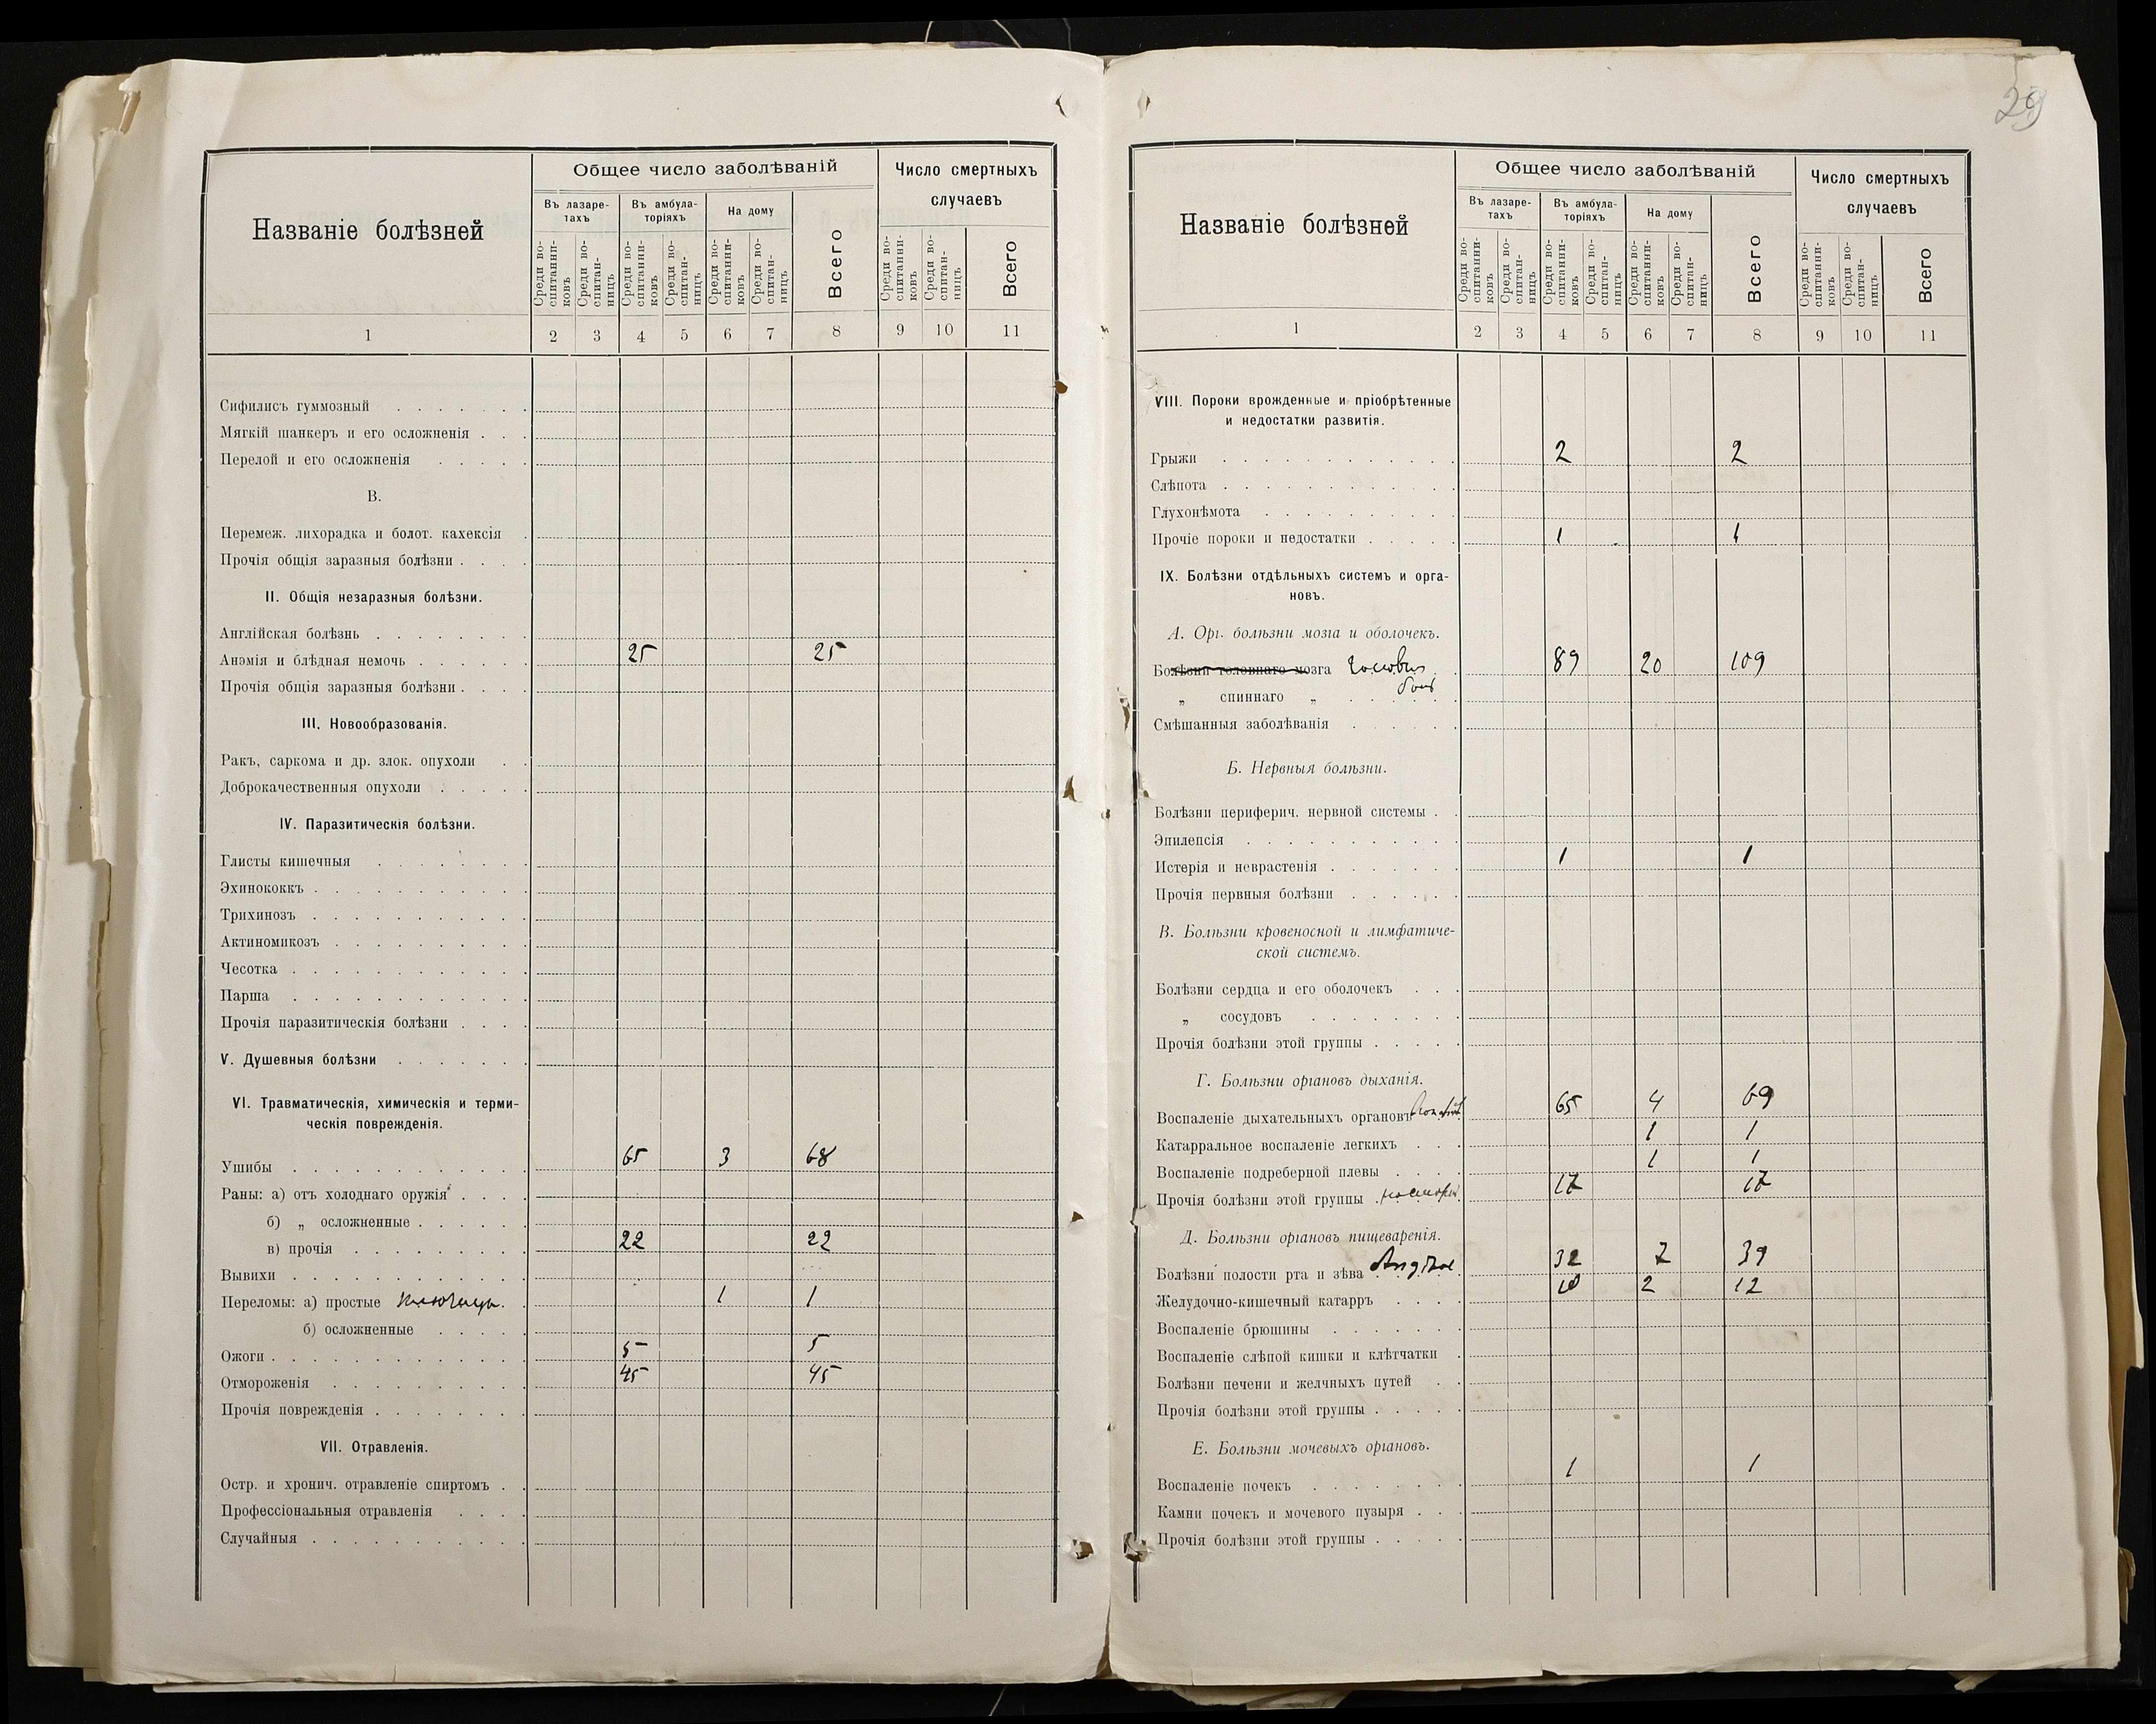 29
Названіе болѣзней
Общее число заболѣваній
Число смертныхъ случаевъ
Въ лазаретахъ
Въ амбулаторіяхъ
На дому
Среди воспитанниковъ
Среди воспитанницъ
Среди воспитанниковъ
Среди воспитанницъ
Среди воспитанниковъ
Среди воспитанницъ
Всего
Среди воспитанниковъ
Среди воспитанницъ
Всего
1 2 3 4 5 6 7 8 9 10 11
Сифилисъ гуммозный
Мягкій шанкеръ и его осложненія
Перелой и его осложненія
В.
Перемеж. лихорадка и болот. кахексія
Прочія общія заразныя болѣзни
II. Общія незаразныя болѣзни.
Англійская болѣзнь
Анэмія и блѣдная немочь 25 25
Прочія общія заразныя болѣзни
III. Новообразованія.
Ракъ, саркома и др. злок. опухоли
Доброкачественныя опухоли
IV. Паразитическія болѣзни.
Глисты кишечныя
Эхинококкъ
Трихинозъ
Актиномикозъ
Чесотка
Парша
Прочія паразитическія болѣзни
V. Душевныя болѣзни
VI. Травматическія, химическія и терми-
ческія поврежденія.
Ушибы 65 3 68
Раны: а) отъ холоднаго оружія
б) „ осложненные
в) прочія 22 22
Вывихи
Переломы: а) простые ключицы 1 1
б) осложненные
Ожоги 5 5
Отмороженія 45 45
Прочія поврежденія
VII. Отравленія.
Остр. и хронич. отравленіе спиртомъ
Профессіональныя отравленія
Случайныя
Названіе болѣзней
Общее число заболѣваній
Число смертныхъ случаевъ
Въ лазаретахъ
Въ амбулаторіяхъ
На дому
Среди воспитанниковъ
Среди воспитанницъ
Среди воспитанниковъ
Среди воспитанницъ
Среди воспитанниковъ
Среди воспитанницъ
Всего
Среди воспитанниковъ
Среди воспитанницъ
Всего
1 2 3 4 5 6 7 8 9 10 11
VIII. Пороки врожденные и пріобрѣтенные
и недостатки развитія.
Грыжи 2 2
Слѣпота
Глухонѣмота
Прочіе пороки и недостатки 1 1
IX. Болѣзни отдѣльныхъ системъ и орга-
новъ.
А. Орг. болѣзни мозга и оболочекъ.
Болѣзни головнаго мозга головн 89 20 109
боль
„ спиннаго „
Смѣшанныя заболѣванія
Б. Нервныя болѣзни.
Болѣзни периферич. нервной системы
Эпилепсія
Истерія и неврастенія 1 1
Прочія нервныя болѣзни
В. Болѣзни кровеносной и лимфатиче-
ской системъ.
Болѣзни сердца и его оболочекъ
„ сосудовъ
Прочія болѣзни этой группы
Г. Болѣзни органовъ дыханія.
Воспаленіе дыхательныхъ органовъ 65 4 69
Катарральное воспаленіе легкихъ 1 1
Воспаленіе подреберной плевы 1 1
Прочія болѣзни этой группы насморкъ 17 17
Д. Болѣзни органовъ пищеваренія.
Болѣзни полости рта и зѣва 32 7 39
Желудочно-кишечный катарръ 10 2 12
Воспаленіе брюшины
Воспаленіе слѣпой кишки и клѣтчатки
Болѣзни печени и желчныхъ путей
Прочія болѣзни этой группы
Е. Болѣзни мочевыхъ органовъ.
Воспаленіе почекъ 1 1
Камни почекъ и мочевого пузыря
Прочія болѣзни этой группы